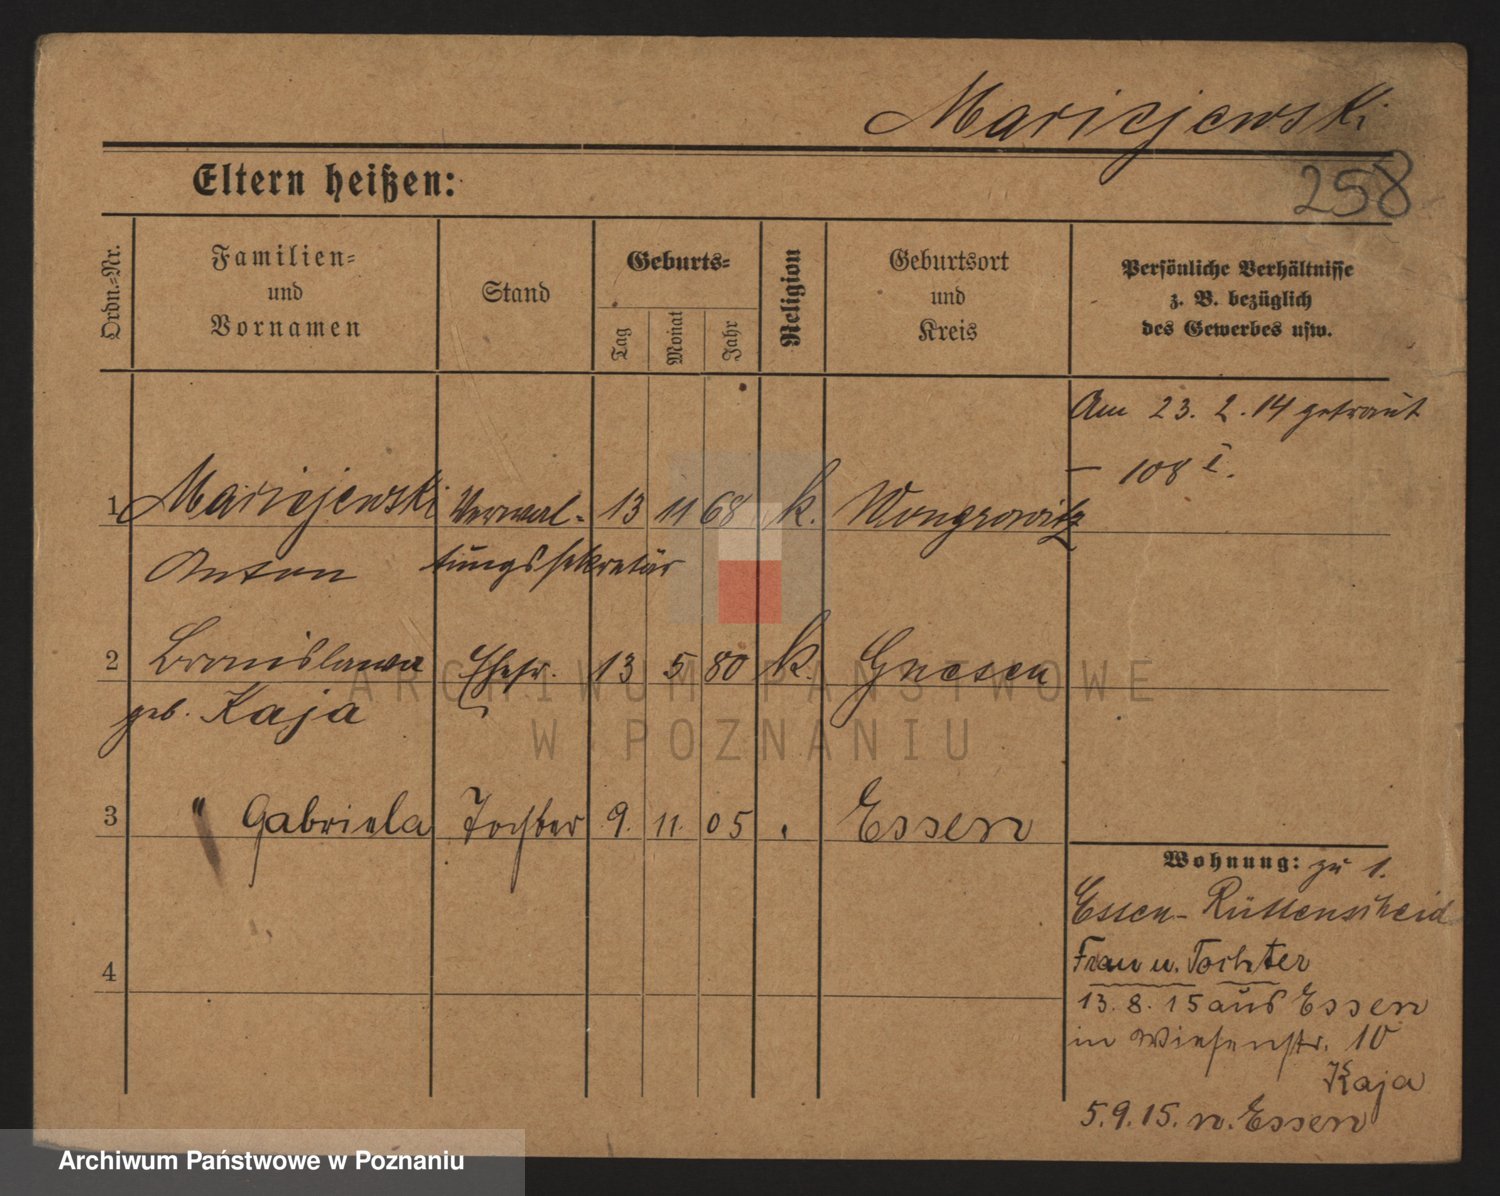 Maricejewski
258
Eltern heißen:
Ordn.-Nr.
Familien-
und
Vornamen
Stand
Geburts-
Tag
Monat
Jahr
Religion
Geburtsort
und
Kreis
Persönliche Verhältnisse
z. B. bezüglich
des Gewerbes usw.
Am 23. 2. 14 getraut
— 108 I.
1 Maricejewski Verwal- 13 11 68 k. Wongrowitz
Anton tungssekretär
2 Bronislawa Ehefr. 13 5 80 k. Gnesen
geb. Kaja
3 " Gabriela Tochter 9. 11. 05 . Essen
4
Wohnung: zu 1.
Essen-Rüttenscheid
Frau u. Tochter
13. 8. 15 aus Essen
in Wiesenstr. 10
Kaja
5.9.15. n. Essen
ARCHIWUM PAŃSTWOWE
W POZNANIU
Archiwum Państwowe w Poznaniu